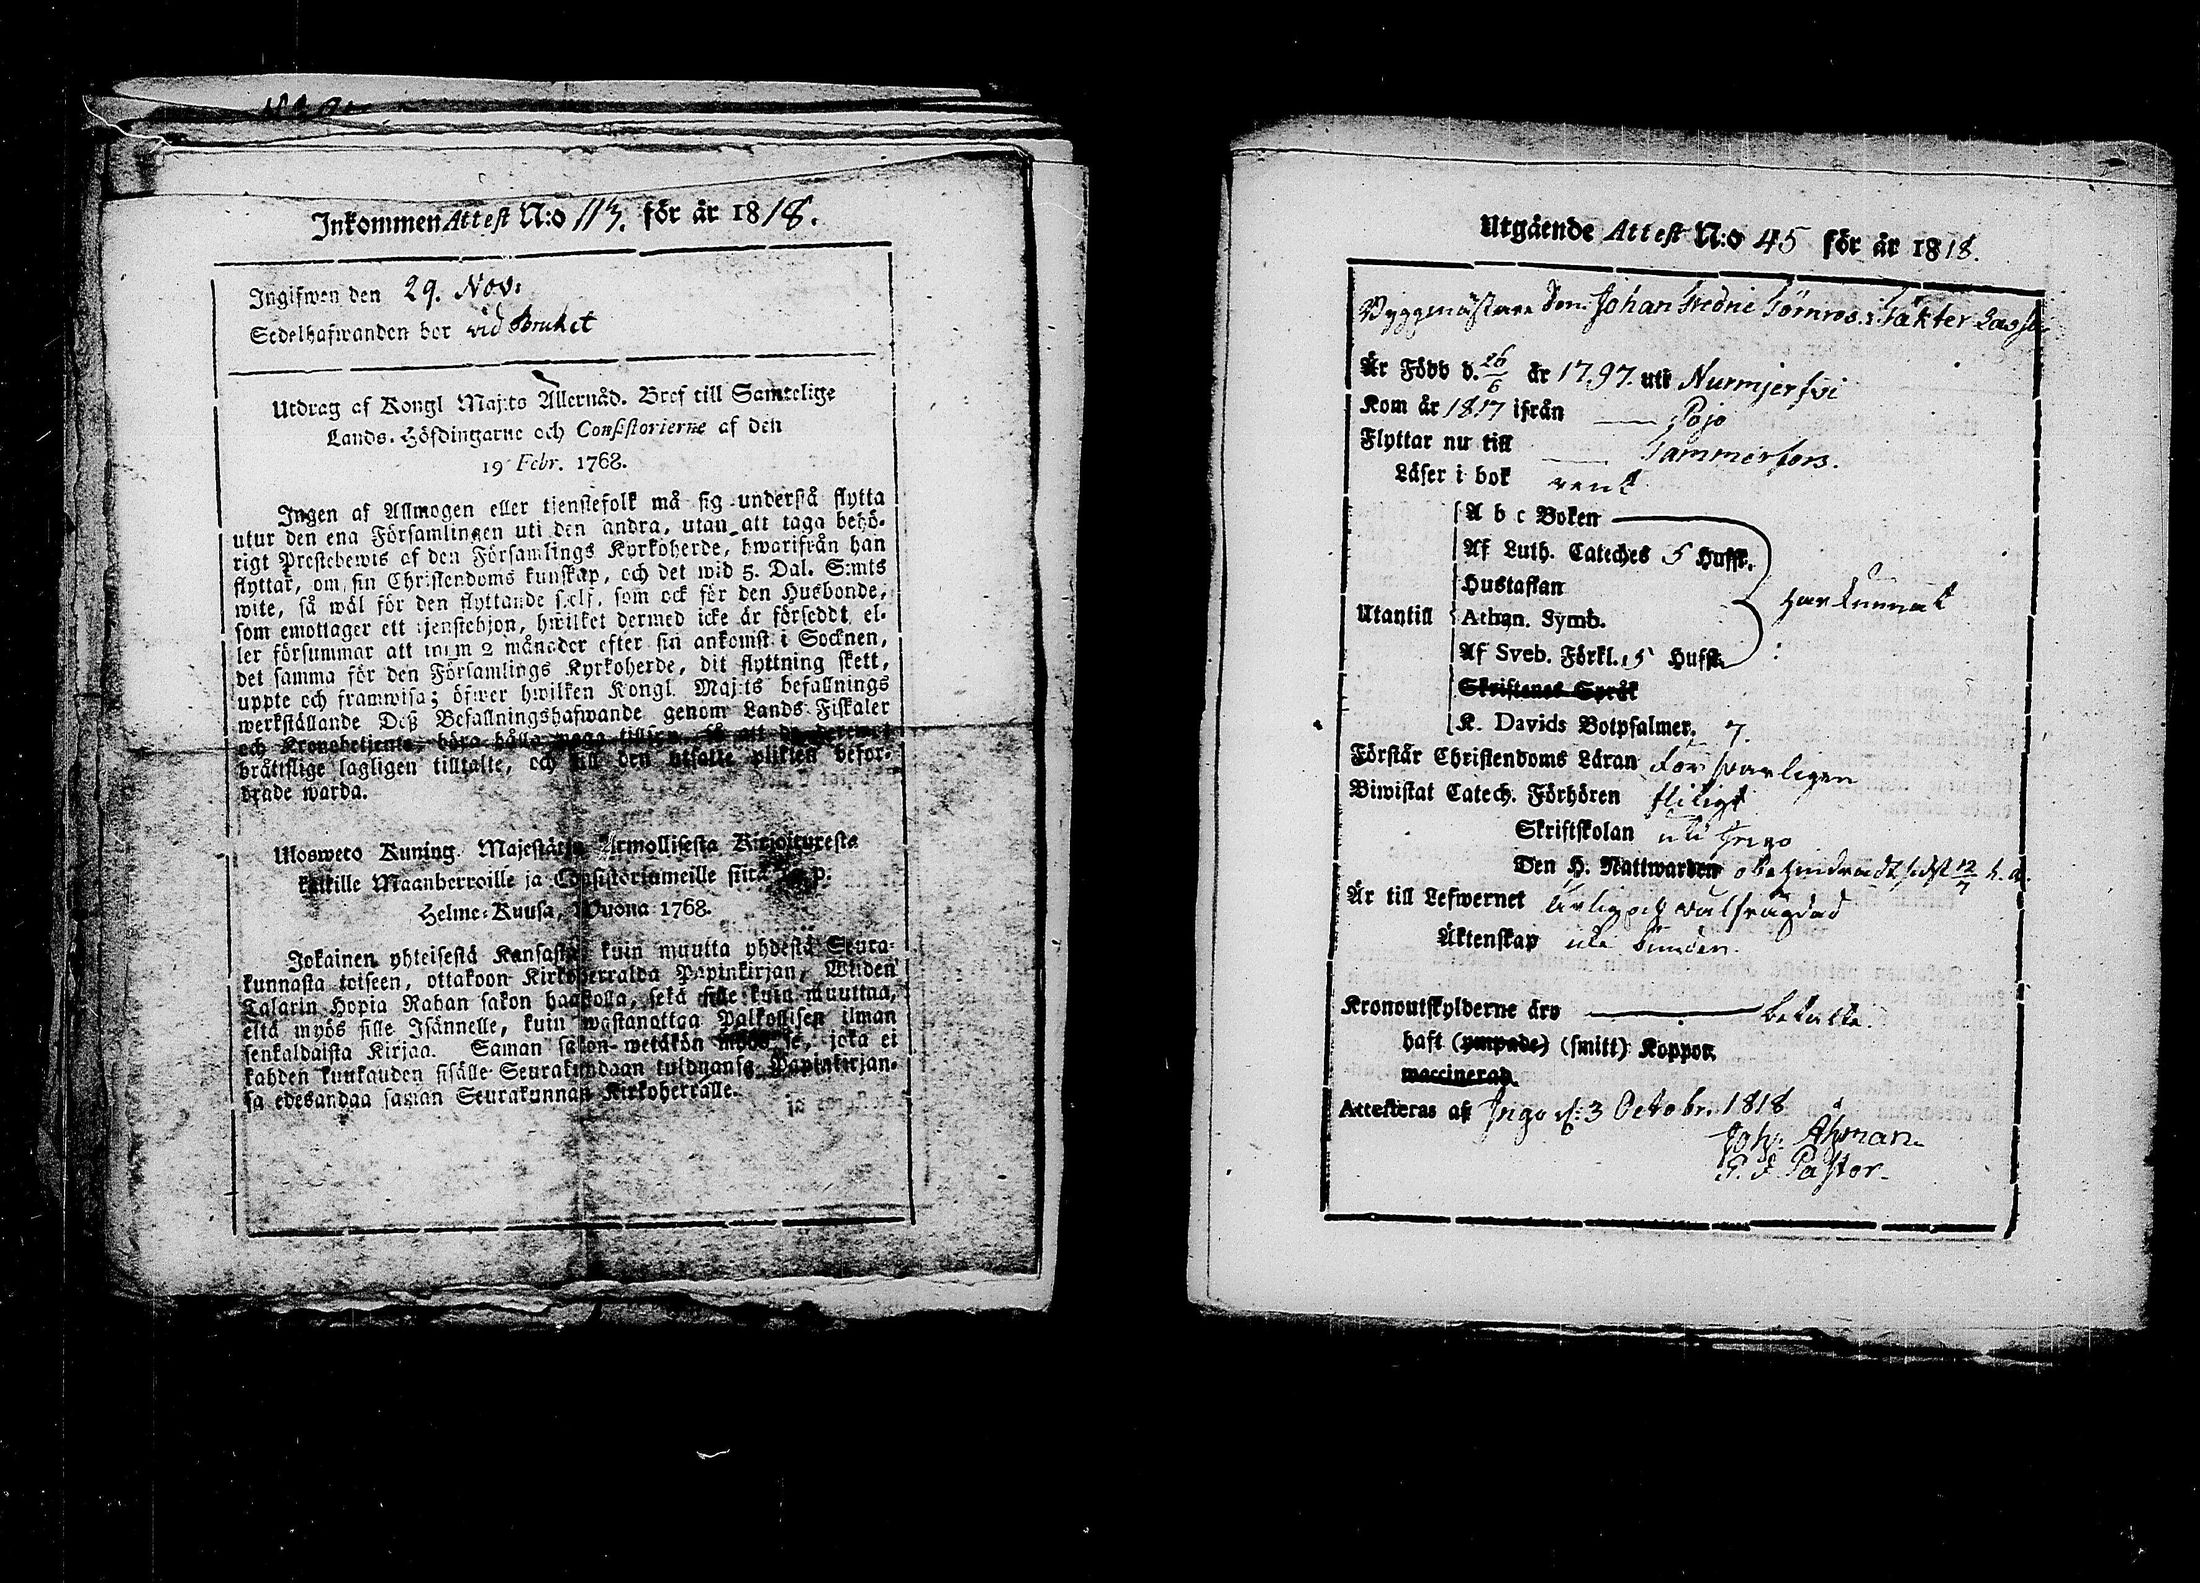 Inkommen Attest N:o 113. för år 1818.
Ingifwen den 29. Nov:
Sedelhafwanden bor vid Bruket
Utdrag af Kongl Maj:ts Allernåd. Bref till Samtelige
Lands-Höfdingarne och Consistorierne af den
19 Febr. 1768.
Ingen af Allmogen eller tjenstefolk må sig understå flytta
utur den ena Församlingen uti den andra, utan att taga behö-
rigt Prestebewis af den Församlings Kyrkoherde, hwarifrån han
flyttar, om sin Christendoms kunskap, och det wid 5. Dal. S:mts
wite, så wäl för den flyttande sjelf, som ock för den Husbonde,
som emottager ett tjenstehjon, hwilket dermed icke är försedt, el-
ler försummar att inom 2 månader efter sin ankomst i Socknen,
det samma för den Församlings Kyrkoherde, dit flyttning skett,
uppte och framwisa; öfwer hwilken Kongl. Maj:ts befallnings
werkställande Deß Befallningshafwande genom Lands-Fiskaler
och Kronobetjente, böra hålla noga tillsyn, så att de deremot
bråttslige lagligen tilltalte, och till den utsatte plikten befor-
drade warda.
Ulosweto Kuning. Majestätin Armollisesta Kirjoituresta
kaikille Maanherroille ja Consistoriumeille siitä p.
Helme-Kuusa, Wuona 1768.
Jokainen yhteisestä Kansasta, kuin muutta yhdestä Seura-
kunnasta toiseen, ottakoon Kirkoherralda Papinkirjan, Wiiden
Talarin Hopia Rahan sakon haastolla, sekä sille kuin muuttaa,
että myös sille Isännelle, kuin wastanottaa Palkollisen ilman
senkaldaista Kirjaa. Saman sakon wetäkön myös se, joka ei
kahden kuukauden sisälle Seurakundaan tulduansa Papinkirjan-
sa edesandaa saman Seurakunnan Kirkoherralle.
Utgående Attest N:o 45 för år 1818.
Byggmästare Son: Johan Fredric Törnroos i Täkter
Är Född d. 26/6 år 1797. uti Nurmijerfvi
Kom år 1817 ifrån — Pojo
Flyttar nu till — Tammerfors.
Läser i bok rent
A b c Boken
Af Luth. Cateches 5 Huffst.
Hustaflan
Utantill Athan. Symb. Har kunnat
Af Sveb. Förkl. 5 Hufst.
Skriftenes Språk
K. Davids Botpsalmer. 7.
Förstår Christendoms Läran Försvarligen
Biwistat Catech. Förhören flitigt
Skriftskolan uti Ingo
Den H. Nattwarden obehindradt sidst 12/7 h. a.
Är till Lefwernet ärlig och välfrägdad
Äktenskap utebunden.
Kronoutskylderne äro — betalte.
haft (ympade) (smitt) Koppor.
waccinerad.
Attesteras af Ingo d: 3 Octobr. 1818
Joh: Åhman.
E. I. Pastor.